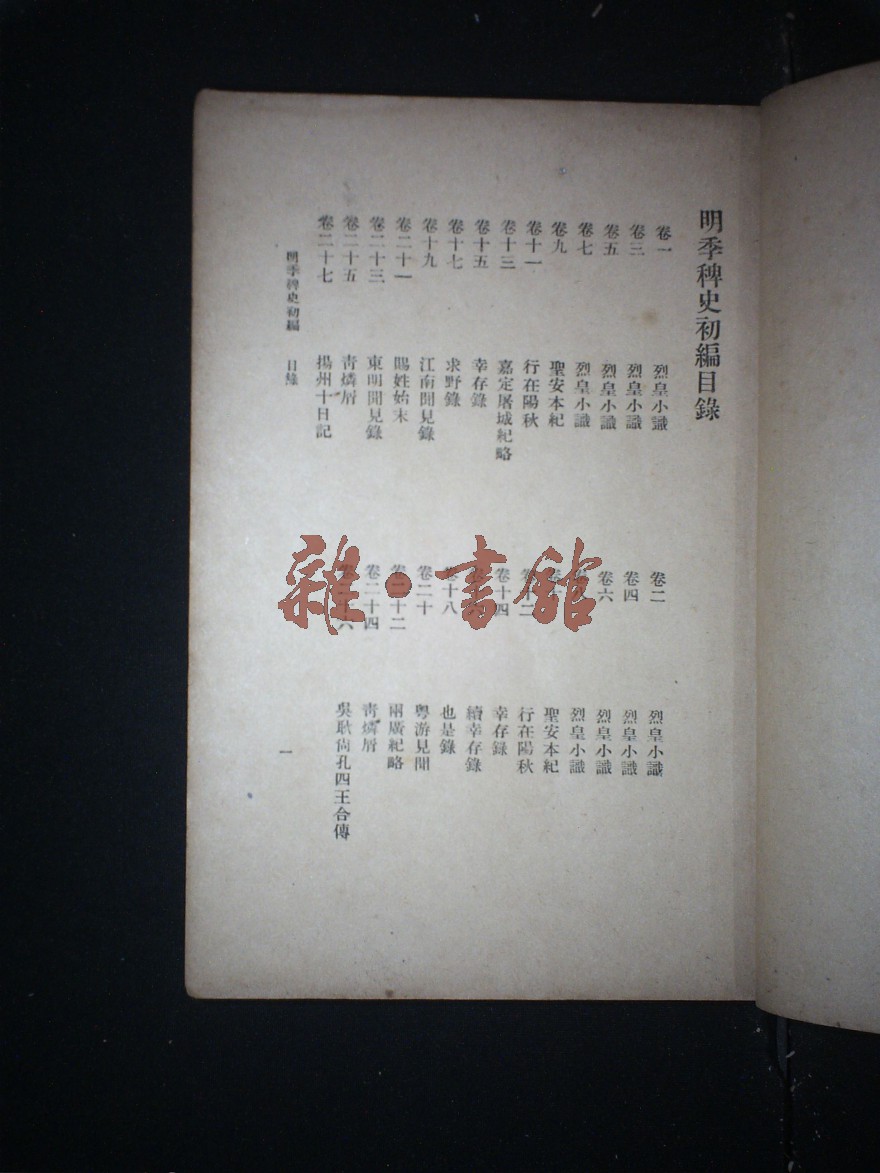 明季稗史初編目錄
卷一 烈皇小識 卷二 烈皇小識
卷三 烈皇小識 卷四 烈皇小識
卷五 烈皇小識 卷六 烈皇小識
卷七 烈皇小識 烈皇小識
卷九 聖安本紀 聖安本紀
卷十一 行在陽秋 卷十二 行在陽秋
卷十三 嘉定屠城紀略 卷十四 幸存錄
卷十五 幸存錄 續幸存錄
卷十七 求野錄 卷十八 也是錄
卷十九 江南聞見錄 卷二十 粵游見聞
卷二十一 賜姓始末 卷二十二 兩廣紀略
卷二十三 東明聞見錄 卷二十四 靑燐屑
卷二十五 靑燐屑 卷二十六 吳耿尙孔四王合傳
卷二十七 揚州十日記
明季稗史初編 目錄 一
雜·書館